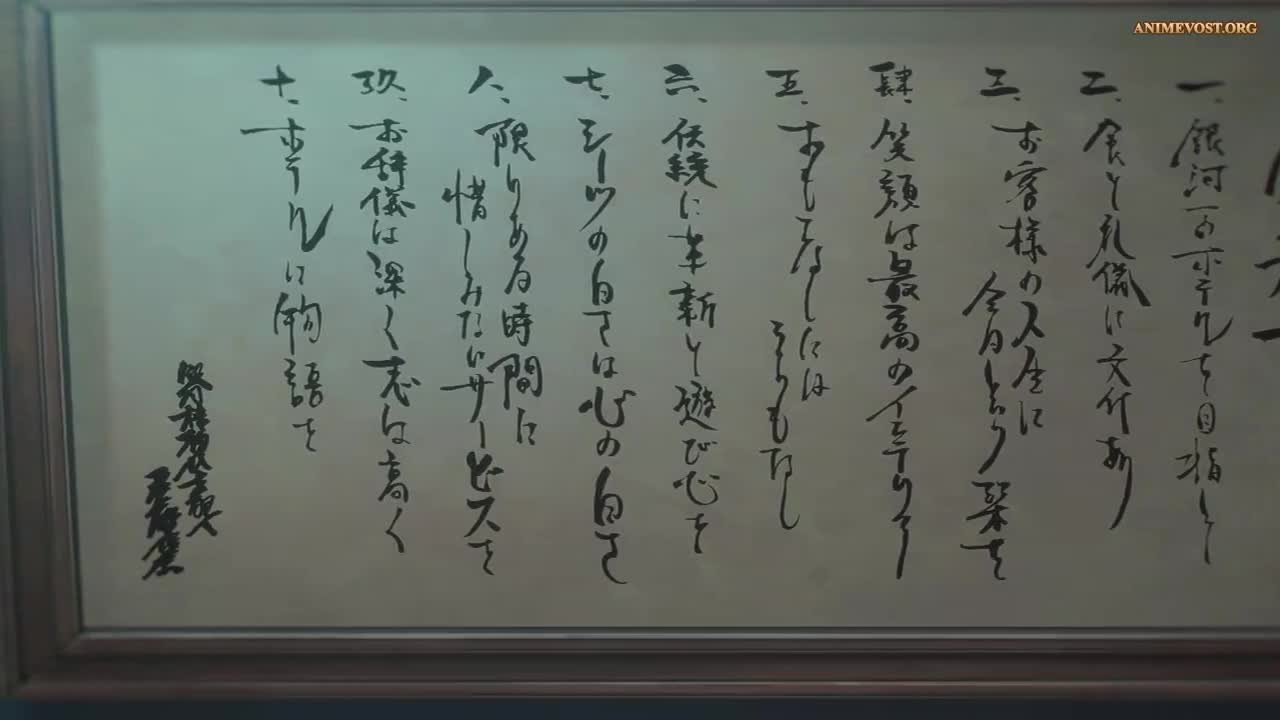 一、銀河一のホテルを目指して
二、食と礼儀に文化あり
三、お客様の人生に
今日という栞を
肆、笑顔は最高のインテリア
五、おもてなしには
うらもなし
六、伝統に革新と遊び心を
七、シーツの白さは心の白さ
八、限りある時間に
惜しみないサービスを
玖、お辞儀は深く志は高く
十、ホテルに物語を
ANIMEVOST.ORG